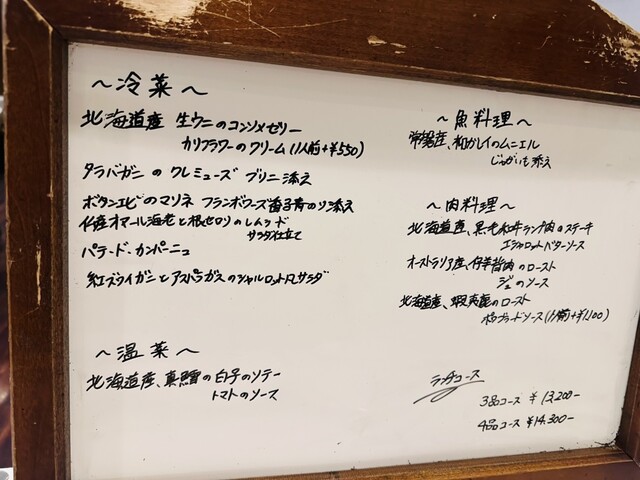 ～冷菜～
北海道産 生ウニのコンソメゼリー
カリフラワーのクリーム(1人前+¥550)
タラバガニの クレミューズ ブリニ添え
ボタンエビのマリネ フランボワーズ 青のり添え
仏産オマール海老と根セロリのレムラード
サラダ仕立て
パテ・ド・カンパーニュ
紅ズワイガニとアスパラガスのシャルロット風サラダ
～温菜～
北海道産、真鱈の白子のソテー
トマトのソース
～魚料理～
常磐産、柳カレイのムニエル
じゃがいも添え
～肉料理～
北海道産、黒毛和牛ランプ肉のステーキ
エシャロットバターソース
オーストラリア産、仔羊背肉のロースト
ジュのソース
北海道産、蝦夷鹿のロースト
ポワヴラードソース(1人前+¥1,100)
ランチコース
3品コース ¥13,200-
4品コース ¥14,300-